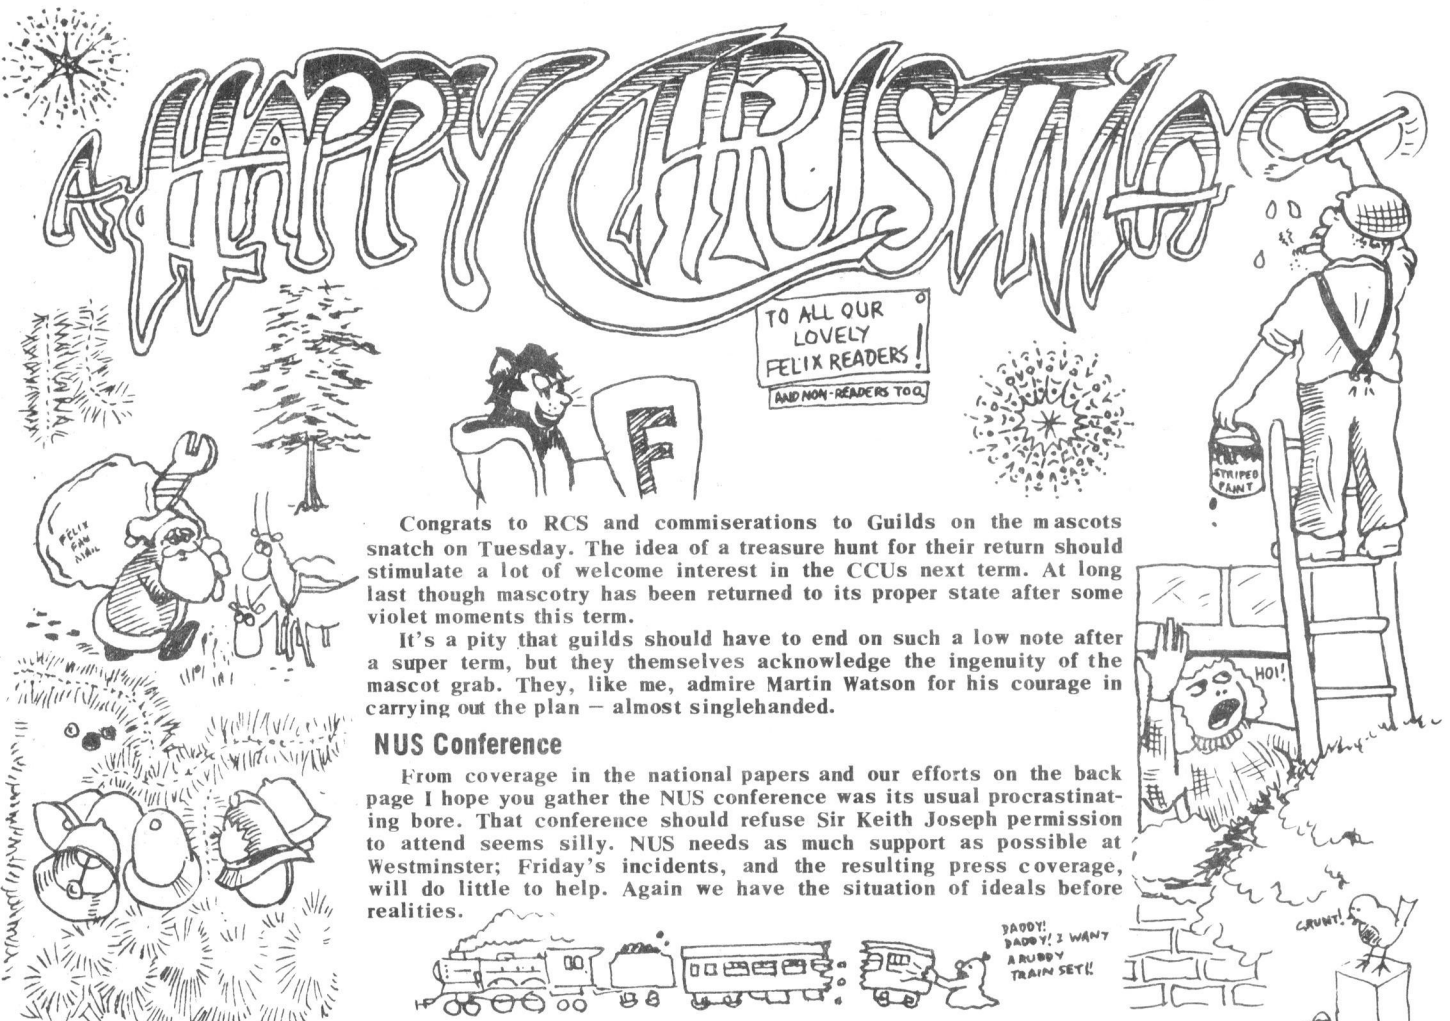 A HAPPY CHRISTMAS
TO ALL OUR
LOVELY
FELIX READERS!
AND NON-READERS TOO
F
FELIX
FAN
MAIL
STRIPED
PAINT
Congrats to RCS and commiserations to Guilds on the mascots
snatch on Tuesday. The idea of a treasure hunt for their return should
stimulate a lot of welcome interest in the CCUs next term. At long
last though mascotry has been returned to its proper state after some
violet moments this term.
It's a pity that guilds should have to end on such a low note after
a super term, but they themselves acknowledge the ingenuity of the
mascot grab. They, like me, admire Martin Watson for his courage in
carrying out the plan — almost singlehanded.
HOI!
NUS Conference
From coverage in the national papers and our efforts on the back
page I hope you gather the NUS conference was its usual procrastinat-
ing bore. That conference should refuse Sir Keith Joseph permission
to attend seems silly. NUS needs as much support as possible at
Westminster; Friday's incidents, and the resulting press coverage,
will do little to help. Again we have the situation of ideals before
realities.
DADDY!
DADDY! I WANT
A RUDDY
TRAIN SET!!
GRUNT!